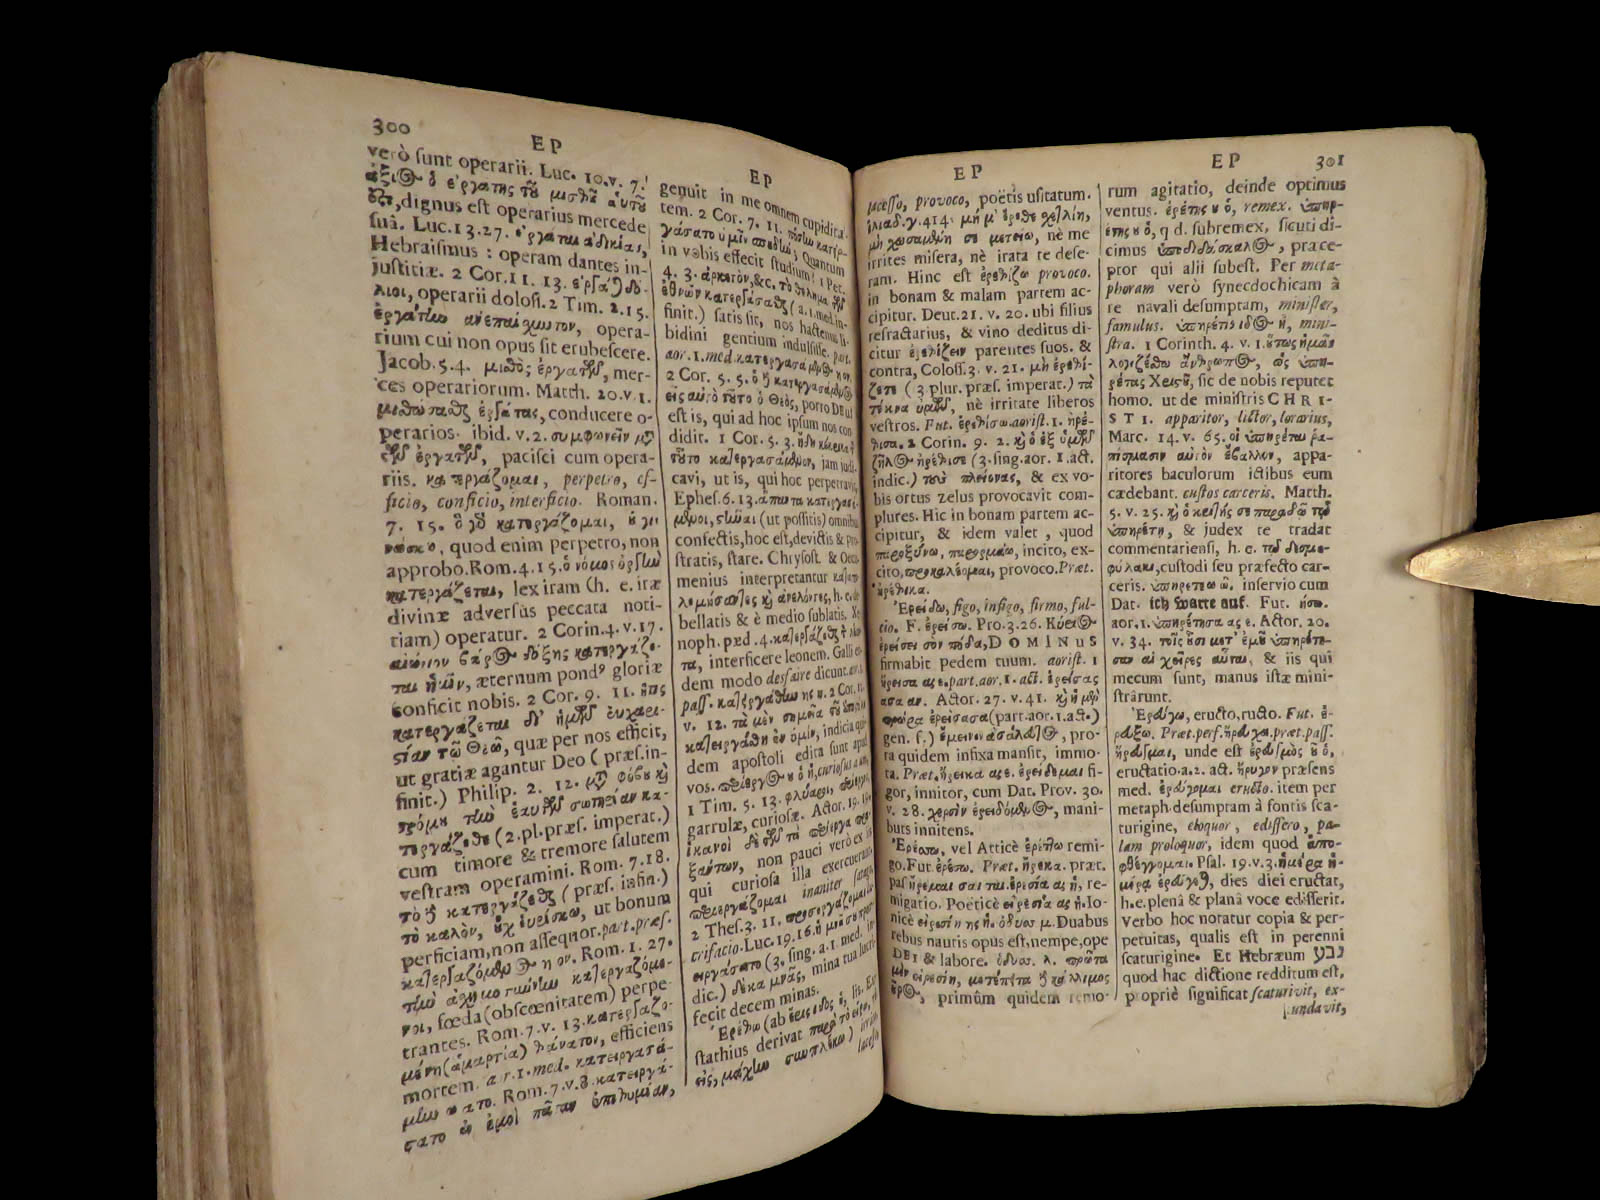 300
ΕΡ
verò ſunt operarii. Luc. 10. v. 7.
ἄξιος ὁ ἐργάτης τοῦ μισθοῦ αὐτοῦ
ὅζι, dignus eſt operarius mercede
ſuâ. Luc. 13. 27. ἐργάται ἀδικίας,
Hebraiſmus : operam dantes in-
juſtitiæ. 2 Cor. 11. 13. ἐργάται δό-
λιοι, operarii doloſi. 2 Tim. 2. 15.
ἐργάτην ἀνεπαίσχυντον, opera-
rium cui non opus ſit erubeſcere.
Jacob. 5. 4. μισθὸς ἐργατῶν, mer-
ces operariorum. Matth. 20. v. 1.
μισθώσασθαι ἐργάτας, conducere o-
perarios. ibid. v. 2. συμφωνεῖν μετὰ
τῶν ἐργατῶν, paciſci cum opera-
riis. κατεργάζομαι, perpetro, ef-
ficio, conficio, interficio. Roman.
7. 15. ὃ γὰρ κατεργάζομαι, οὐ γι-
νώσκω, quod enim perpetro, non
approbo. Rom. 4. 15. ὁ νόμος ὀργὴν
κατεργάζεται, lex iram (h. e. iræ
divinæ adverſùs peccata noti-
tiam) operatur. 2 Corin. 4. v. 17.
αἰώνιον βάρος δόξης κατεργάζε-
ται ἡμῖν, æternum pondꝰ gloriæ
conficit nobis. 2 Cor. 9. 11. ἥτις
κατεργάζεται δι' ἡμῶν εὐχαρι-
στίαν τῷ Θεῷ, quæ per nos efficit,
ut gratiæ agantur Deo ( præſ. in-
finit.) Philip. 2. 12. μετὰ φόβου καὶ
τρόμου τὴν ἑαυτῶν σωτηρίαν κα-
τεργάζεσθε (2. pl. præſ. imperat.)
cum timore & tremore ſalutem
veſtram operamini. Rom. 7. 18.
τὸ δὲ κατεργάζεσθαι ( præſ. infin.)
τὸ καλὸν, οὐχ εὑρίσκω, ut bonum
perficiam, non aſſequor. part. præſ.
κατεργαζόμενος η ον. Rom. 1. 27.
τὴν ἀσχημοσύνην κατεργαζόμε-
νοι, fœda (obſcœnitatem) perpe-
trantes. Rom. 7. v. 13. κατεργαζο-
μένη (ἁμαρτία) θάνατον, efficiens
mortem. aor. 1. med. κατειργασά-
μην ω ατο. Rom. 7. v. 8. κατειργά-
σατο ἐν ἐμοὶ πᾶσαν ἐπιθυμίαν,
ΕΡ
genuit in me omnem cupidita-
tem. 2 Cor. 7. 11. πόσην κατειρ-
γάσατο ὑμῖν σπουδήν; Quantum
in vobis effecit ſtudium? 1 Pet.
4. 3. ἀρκετὸν, &c. τὸ θέλημα τῶν
ἐθνῶν κατεργάσασθαι ( a. 1. med. in-
finit.) ſatis ſit, nos hactenus li-
bidini gentium indulſiſſe. part.
aor. 1. med. κατεργασάμενος η ον.
2 Cor. 5. 5. ὁ δὲ κατεργασάμενος
εἰς αὐτὸ τοῦτο ὁ Θεὸς, porro DEus
eſt is, qui ad hoc ipſum nos con
didit. 1 Cor. 5. 3. ἤδη κέκρικα τ
τοῦτο κατεργασάμενον, jam judi-
cavi, ut is, qui hoc perpetravit,
Epheſ. 6. 13. ἅπαντα κατεργασά-
μενοι, στῆναι (ut poſſitis) omnibus
confectis, hoc eſt, devictis & pro
ſtratis, ſtare. Chryſoſt. & Oecu
menius interpretantur καταπο
λεμήσαντες καὶ ἀνελόντες, h. e. de
bellatis & è medio ſublatis. Xe
noph. pæd. 4. κατεργάζεσθαι τ λέον
τα, interficere leonem. Galli ea
dem modo desfaire dicunt. aor. 1.
paſſ. κατειργάσθην ης η. 2 Cor. 12.
v. 12. τὰ μὲν σημεῖα τοῦ ἀποστόλου
κατειργάσθη ἐν ὑμῖν, indicia qui-
dem apoſtoli edita ſunt apud
vos. περίεργος ου ὁ ἡ, curioſus a um,
1 Tim. 5. 13. φλύαροι, περίεργοι,
garrulæ, curioſæ. Actor. 19. 19.
ἱκανοὶ δὲ τῶν τὰ περίεργα πρα-
ξάντων, non pauci verò ex iis
qui curioſa illa exercuerant.
περιεργάζομαι inaniter ſatago.
2 Theſ. 3. 11. προσεργάζομαι lu-
crifacio. Luc. 19. 16. ἡ μνᾶ σου προσ-
ειργάσατο (3. ſing. a. 1. med. in-
dic.) δέκα μνᾶς, mina tua lucri-
fecit decem minas.
Ἐρέθω (ab ἔρις ιδος ἡ, lis. Eu-
ſtathius derivat παρὰ τὸ εἴρω, τὸ
εἰς μάχην συμπλέκω) irrito,
laceſſo
ΕΡ
laceſſo, provoco, poëtis uſitatum.
ἰλιαδ. γ. 414. μή μ' ἔρεθε σχετλίη,
μὴ χωσαμένη σε μεθείω, nè me
irrites miſera, nè irata te deſe-
ram. Hinc eſt ἐρεθίζω provoco.
in bonam & malam partem ac-
cipitur. Deut. 21. v. 20. ubi filius
refractarius, & vino deditus di-
citur ἐρεθίζειν parentes ſuos. &
contra, Coloſſ. 3. v. 21. μὴ ἐρεθί-
ζετε ( 3 plur. præſ. imperat.) τὰ
τέκνα ὑμῶν, nè irritate liberos
veſtros. Fut. ἐρεθίσω. aoriſt. 1. ἠρέ-
θισα. 2 Corin. 9. 2. καὶ ὁ ἐξ ὑμῶν
ζῆλος ἠρέθισε (3. ſing. aor. 1. act.
indic.) τοὺς πλείονας, & ex vo-
bis ortus zelus provocavit com-
plures. Hic in bonam partem ac-
cipitur, & idem valet , quod
παροξύνω, παρορμάω, incito, ex-
cito, προκαλέομαι, provoco. Præt.
ἠρέθικα.
Ἐρείδω, figo, infigo, firmo, ful-
cio. F. ἐρείσω. Pro. 3. 26. Κύριος
ἐρείσει σὸν πόδα, DOMINUS
firmabit pedem tuum. aoriſt. 1
ἤρεισα ας ε. part. aor. 1. act. ἐρείσας
ασα αν. Actor. 27. v. 41. καὶ ἡ μὲν
πρώρα ἐρείσασα (part. aor. 1. act.)
gen. f.) ἔμεινεν ἀσάλευτος, pro-
ra quidem infixa manſit, immo-
ta. Præt. ἤρεικα ας ε. ἐρείδομαι fi-
gor, innitor, cum Dat. Prov. 30.
v. 28. χερσὶν ἐρειδόμενος, mani-
bus innitens.
Ἐρέσσω, vel Atticè ἐρέττω remi-
go. Fut. ἐρέσω. Præt. ἤρεκα. præt.
paſ ἤρεμαι σαι ται. ἐρεσία ας ἡ, re-
migatio. Poëticè εἰρεσία ας ἡ. Io-
nicè εἰρεσίη ης ἡ. ὀδυσσ μ. Duabus
rebus nautis opus eſt, nempe, ope
DEI & labore. ὀδυσ. λ. πρῶτα
μὲν εἰρεσίη, μετέπειτα δὲ κάλλιμος
οὖρος, primùm quidem remo-
ΕΡ
301
rum agitatio, deinde optimus
ventus. ἐρέτης ου ὁ, remex. ὑπηρ-
έτης ου ὁ, q d. ſubremex, ſicuti di-
cimus ὑποδιδάσκαλος, præce-
ptor qui alii ſubeſt. Per meta-
phoram verò ſynecdochicam à
re navali deſumptam, miniſter,
famulus. ὑπηρέτις ιδος ἡ, mini-
ſtra. 1 Corinth. 4. v. 1. οὕτως ἡμᾶς
λογιζέσθω ἄνθρωπος, ὡς ὑπη-
ρέτας Χριστοῦ, ſic de nobis reputet
homo. ut de miniſtris CHRI-
STI. apparitor, lictor, lorarius,
Marc. 14. v. 65. οἱ ὑπηρέται ῥα-
πίσμασιν αὐτὸν ἔβαλλον, appa-
ritores baculorum ictibus eum
cædebant. cuſtos carceris. Matth.
5. v. 25. καὶ ὁ κριτής σε παραδῷ τῷ
ὑπηρέτῃ, & judex te tradat
commentarienſi, h. e. τῷ δεσμο-
φύλακι, cuſtodi ſeu præfecto car-
ceris. ὑπηρετέω ῶ, inſervio cum
Dat. ich warte auf. Fut. ήσω.
aor. 1. ὑπηρέτησα ας ε. Actor. 20.
v. 34. τοῖς οὖσι μετ' ἐμοῦ ὑπηρέτη-
σαν αἱ χεῖρες αὗται, & iis qui
mecum ſunt, manus iſtæ mini-
ſtrârunt.
Ἐρεύγω, eructo, ructo. Fut. ἐ-
ρεύξω. Præt. perf. ἤρευχα. præt. paſſ.
ἤρευγμαι, unde eſt ἐρευγμὸς οῦ ὁ,
eructatio. a. 2. act. ἤρυγον præſens
med. ἐρεύγομαι eructo. item per
metaph. deſumptam à fontis ſca-
turigine, eloquor, ediſſero, pa-
lam proloquor, idem quod ἀπο-
φθέγγομαι. Pſal. 19. v. 3. ἡμέρα ἡ-
μέρᾳ ἐρεύγεται, dies diei eructat,
h. e. plenâ & planâ voce ediſſerit.
Verbo hoc notatur copia & per-
petuitas, qualis eſt in perenni
ſcaturigine. Et Hebræum נבע
quod hac dictione redditum eſt,
propriè ſignificat ſcaturivit, ex-
undavit,